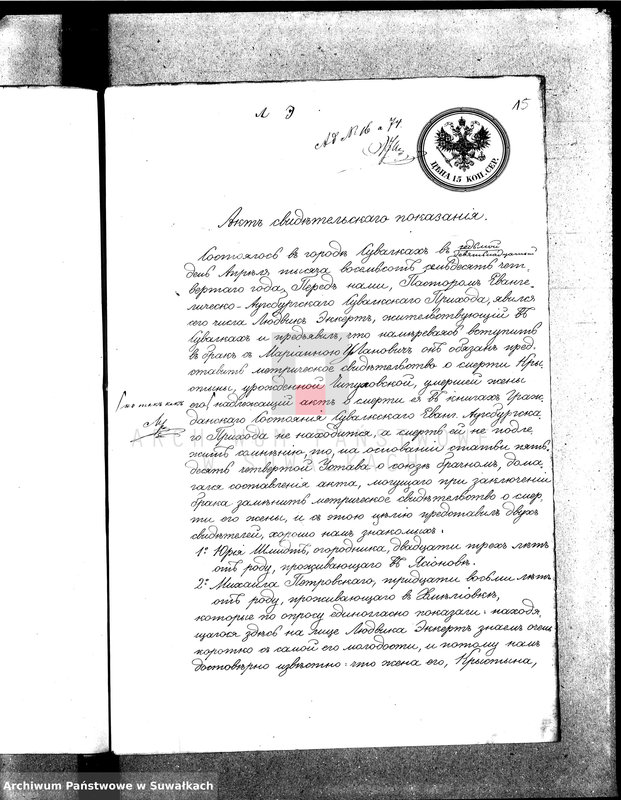 Л Э
15
Ад № 16 а 74.
ЦѢНА 15 КОП. СЕР.
Актъ свидѣтельскаго показанія.
Состоялось въ городѣ Сувалкахъ въ седьмой
день Апрѣля мѣсяца восемьсотъ семьдесятъ чет
вертаго года. Передъ нами, Пасторомъ Еванге
лическо-Аугсбургскаго Сувалкскаго Прихода, явился
сего числа Людвикъ Эккертъ, жительствующій въ
Сувалкахъ и предъявилъ, что намѣреваясь вступить
въ бракъ съ Марианною Улановичъ онъ обязанъ пред
ставить метрическое свидѣтельство о смерти Кры
стины, урожденной умершей жены
его надлежащій актъ о смерти ея въ книгахъ Граж
(но такъ какъ
данскаго Состоянія Сувалкскаго Еванг. Аугсбургска
го Прихода не находится, а смерть ей не подле
житъ сомнѣнію, то, на основаніи статьи пять
десятъ четвертой Устава о союзѣ брачномъ, дома
гался составленія акта, могущаго при заключеніи
брака замѣнить метрическое свидѣтельство о смер
ти его жены, и съ этою цѣлію представилъ двухъ
свидѣтелей, хорошо намъ знакомыхъ:
1º Юрія Шмидтъ, огородника, двадцати трехъ лѣтъ
отъ роду, проживающаго въ
2º Михаила Петровскаго, тридцати восьми лѣтъ
отъ роду, проживающаго въ
которые по опросу единогласно показали: находя
щагося здѣсь на лице Людвика Эккертъ знаемъ очень
коротко съ самой его молодости, и потому намъ
достовѣрно извѣстно: что жена его, Крыстына,
ARCHIWUM PAŃSTWOWE
W SUWAŁKACH
Archiwum Państwowe w Suwałkach